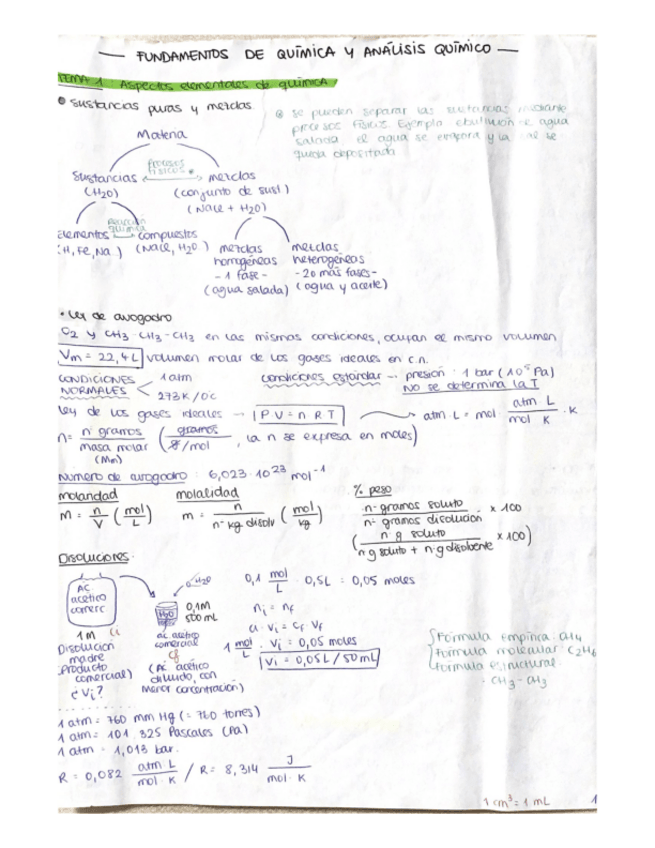 FUNDAMENTOS DE QUÍMICA Y ANÁLISIS QUÍMICO
TEMA 1: Aspectos elementales de química
Sustancias puras y mezclas
Se pueden separar las sustancias mediante
procesos físicos. Ejemplo ebullición de agua
salada, el agua se evapora y la sal se
queda depositada
Materia
Procesos
físicos
Sustancias
(H2O)
mezclas
(conjunto de sust)
(NaCl + H2O)
Reacción
química
Elementos
(H, Fe, Na)
compuestos
(NaCl, H2O)
mezclas
homogéneas
- 1 fase -
(agua salada)
mezclas
heterogéneas
- 2 o más fases -
(agua y aceite)
Ley de avogadro
y CH3-CH2-CH3 en las mismas condiciones, ocupan el mismo volumen
Vm = 22,4 L volumen molar de los gases ideales en c.n.
CONDICIONES
NORMALES
1 atm
273K / 0ºc
condiciones estándar - presión: 1 bar (10^5 Pa)
NO se determina la T
Ley de los gases ideales - PV = nRT
atm · L = mol · atm · L / mol · K · K
n = nº gramos / masa molar (gramos / g/mol, la n se expresa en moles)
(Mm)
Número de avogadro: 6,023 · 10^23 mol^-1
molaridad
M = n/V (mol/L)
molalidad
m = n / nº kg disolv (mol/kg)
% peso
nº gramos soluto / nº gramos disolución × 100
(n g soluto / n g soluto + n g disolvente × 100)
Disoluciones:
AC
acético
comerc
1 M
Disolución
madre
(Producto
comercial)
¿Vi?
H2O
H2O
0,1M
500 mL
ac acético
comercial
(Ac acético
diluido, con
menor concentración)
0,1 mol/L · 0,5L = 0,05 moles
ni = nf
ci · vi = cf vf
1 mol/L · Vi = 0,05 moles
Vi = 0,05 L / 50 mL
Fórmula empírica: CH3
Fórmula molecular: C2H6
Fórmula estructural:
CH3-CH3
1 atm = 760 mm Hg (= 760 torres)
1 atm = 101.325 Pascales (Pa)
1 atm = 1,013 bar.
R = 0,082 atm · L / mol · K / R = 8,314 J / mol · K
1 cm³ = 1 mL
1